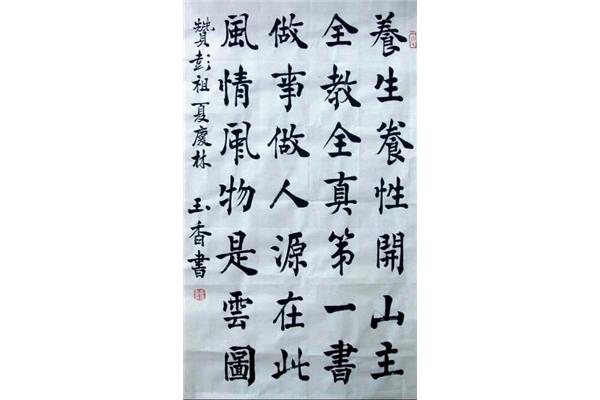 養生養性開山主
全教全真第一書
做事做人源在此
風情风物是雲圖
贊彭祖 夏慶林
玉香書